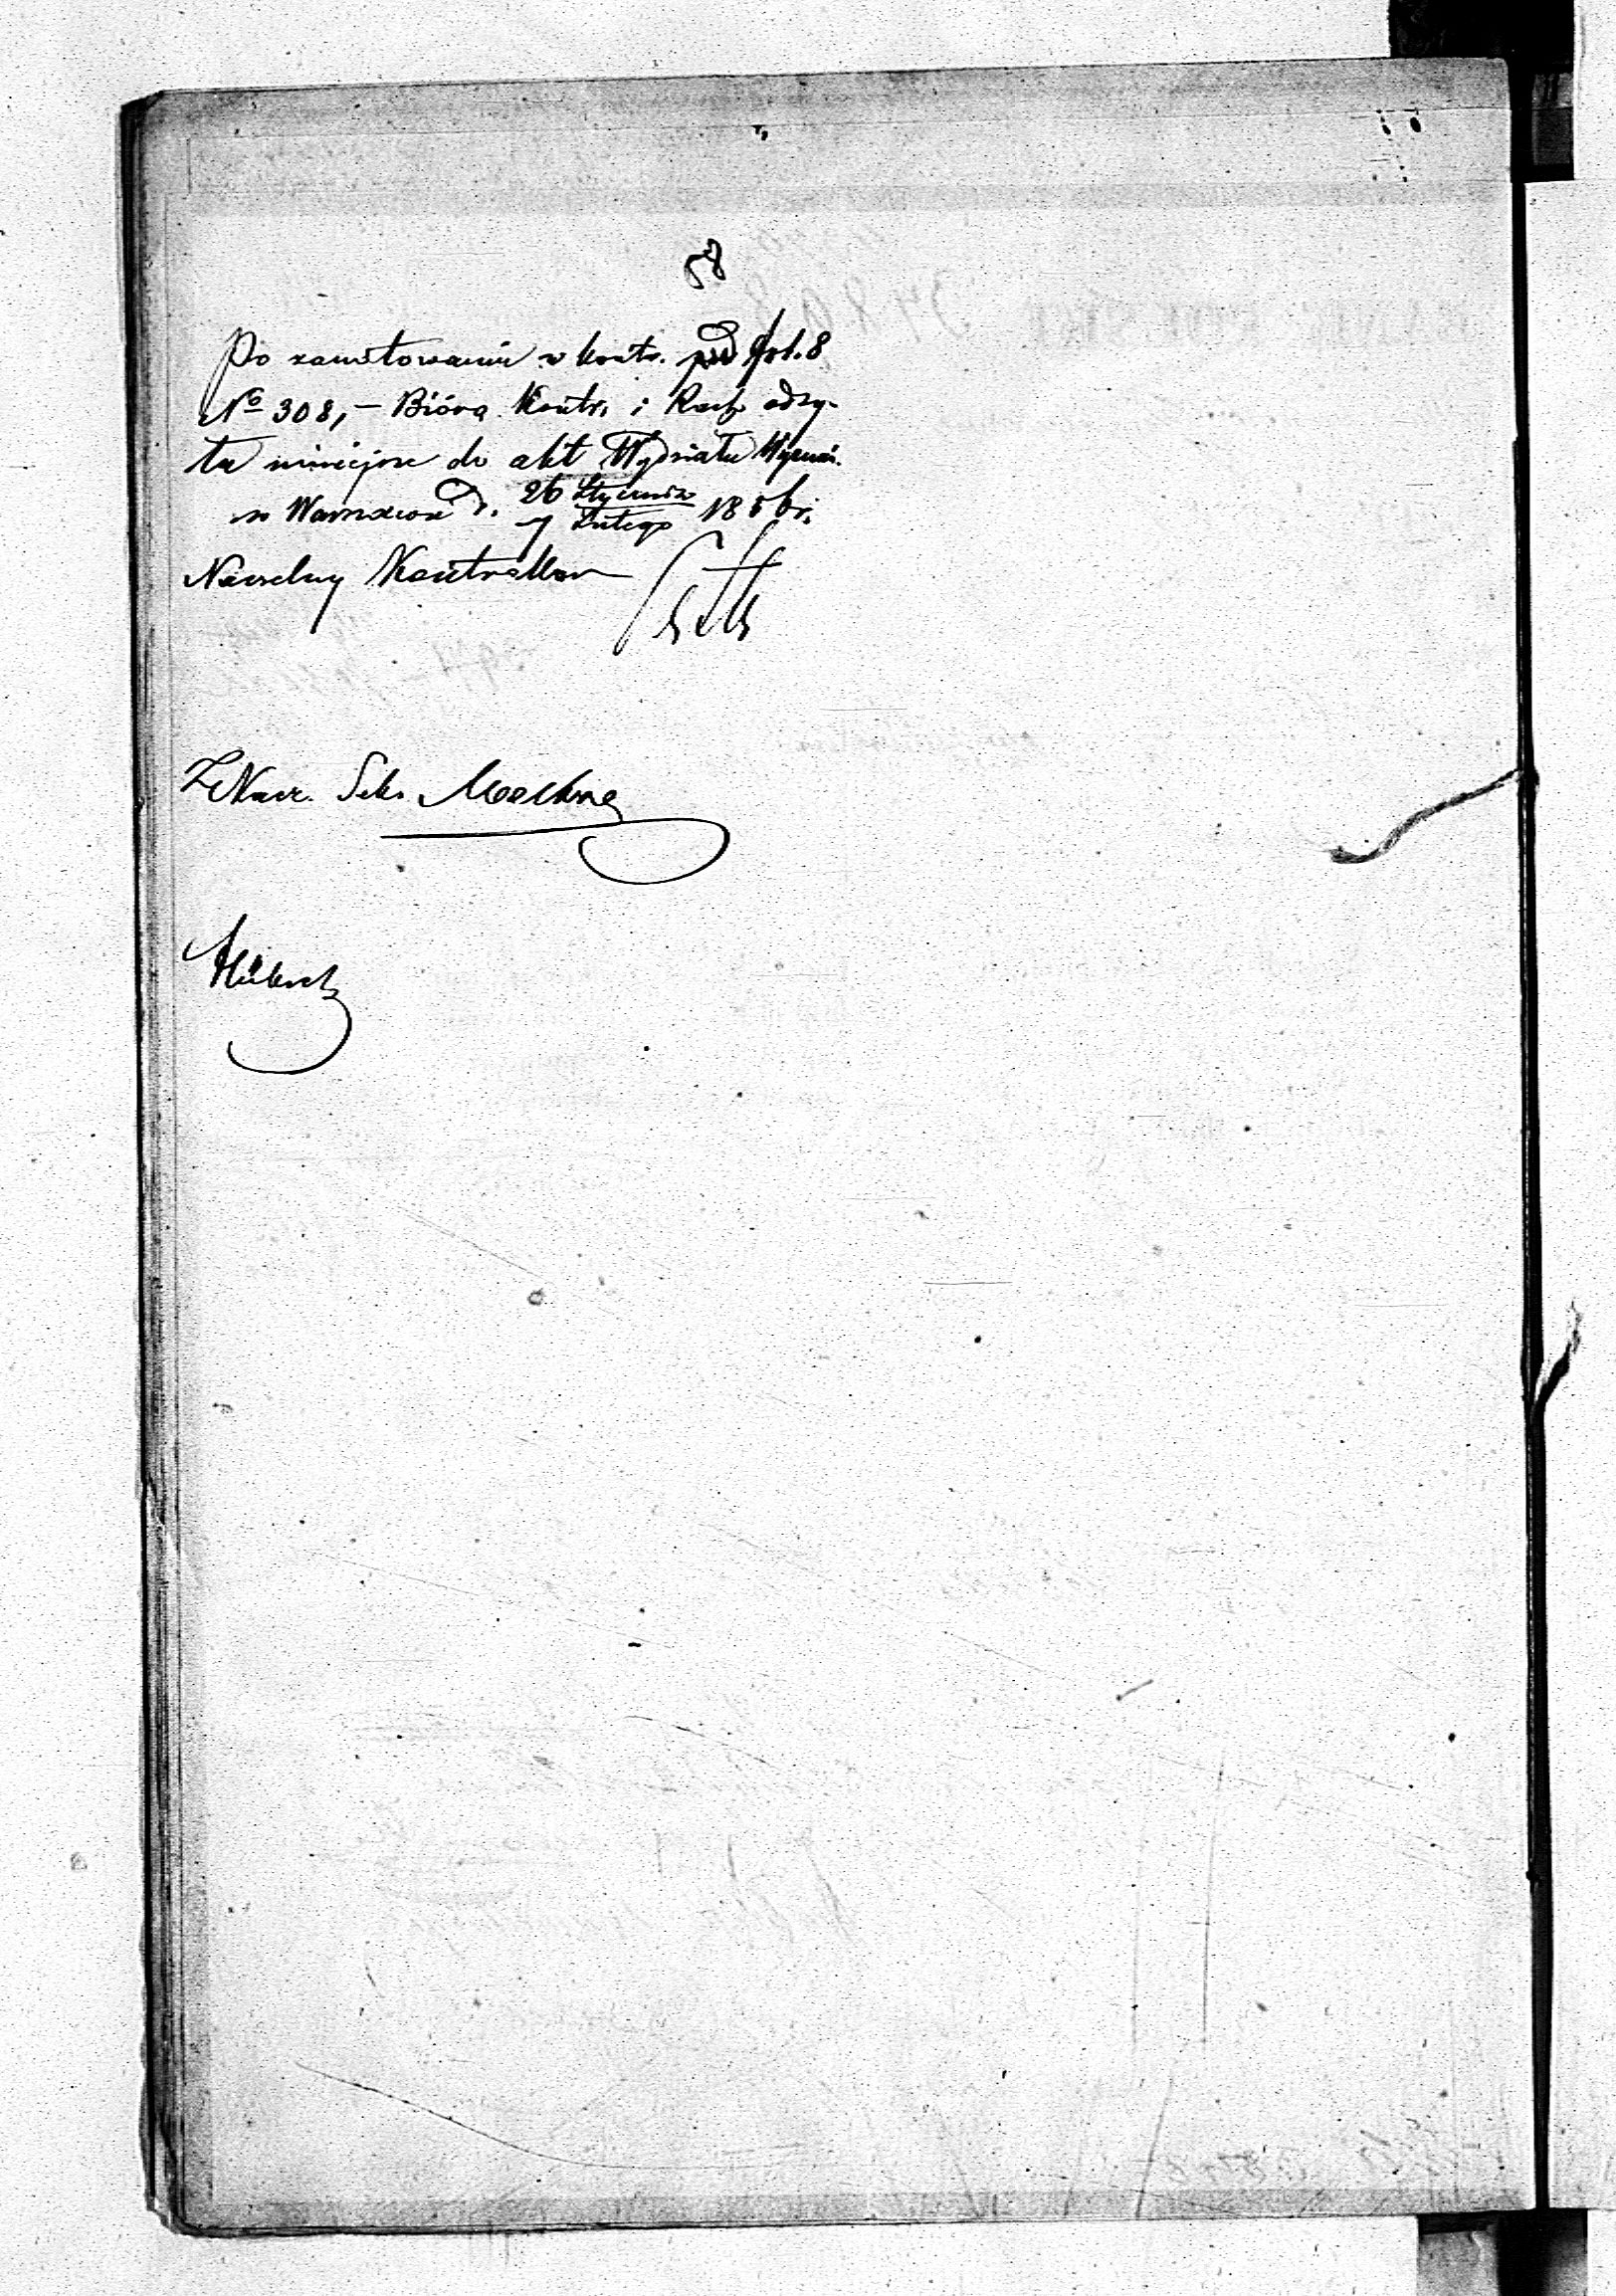 58
Po zanotowaniu w kontr. pod fol. 8
No 308, – Bióro Kontr. i Rach. odsy-
ła niniejsze do akt Wydziału
w Warszawie d. 26 Stycznia
7 Lutego 1856 r.
Naczelny Kontroller
Z Nacz. Sek.